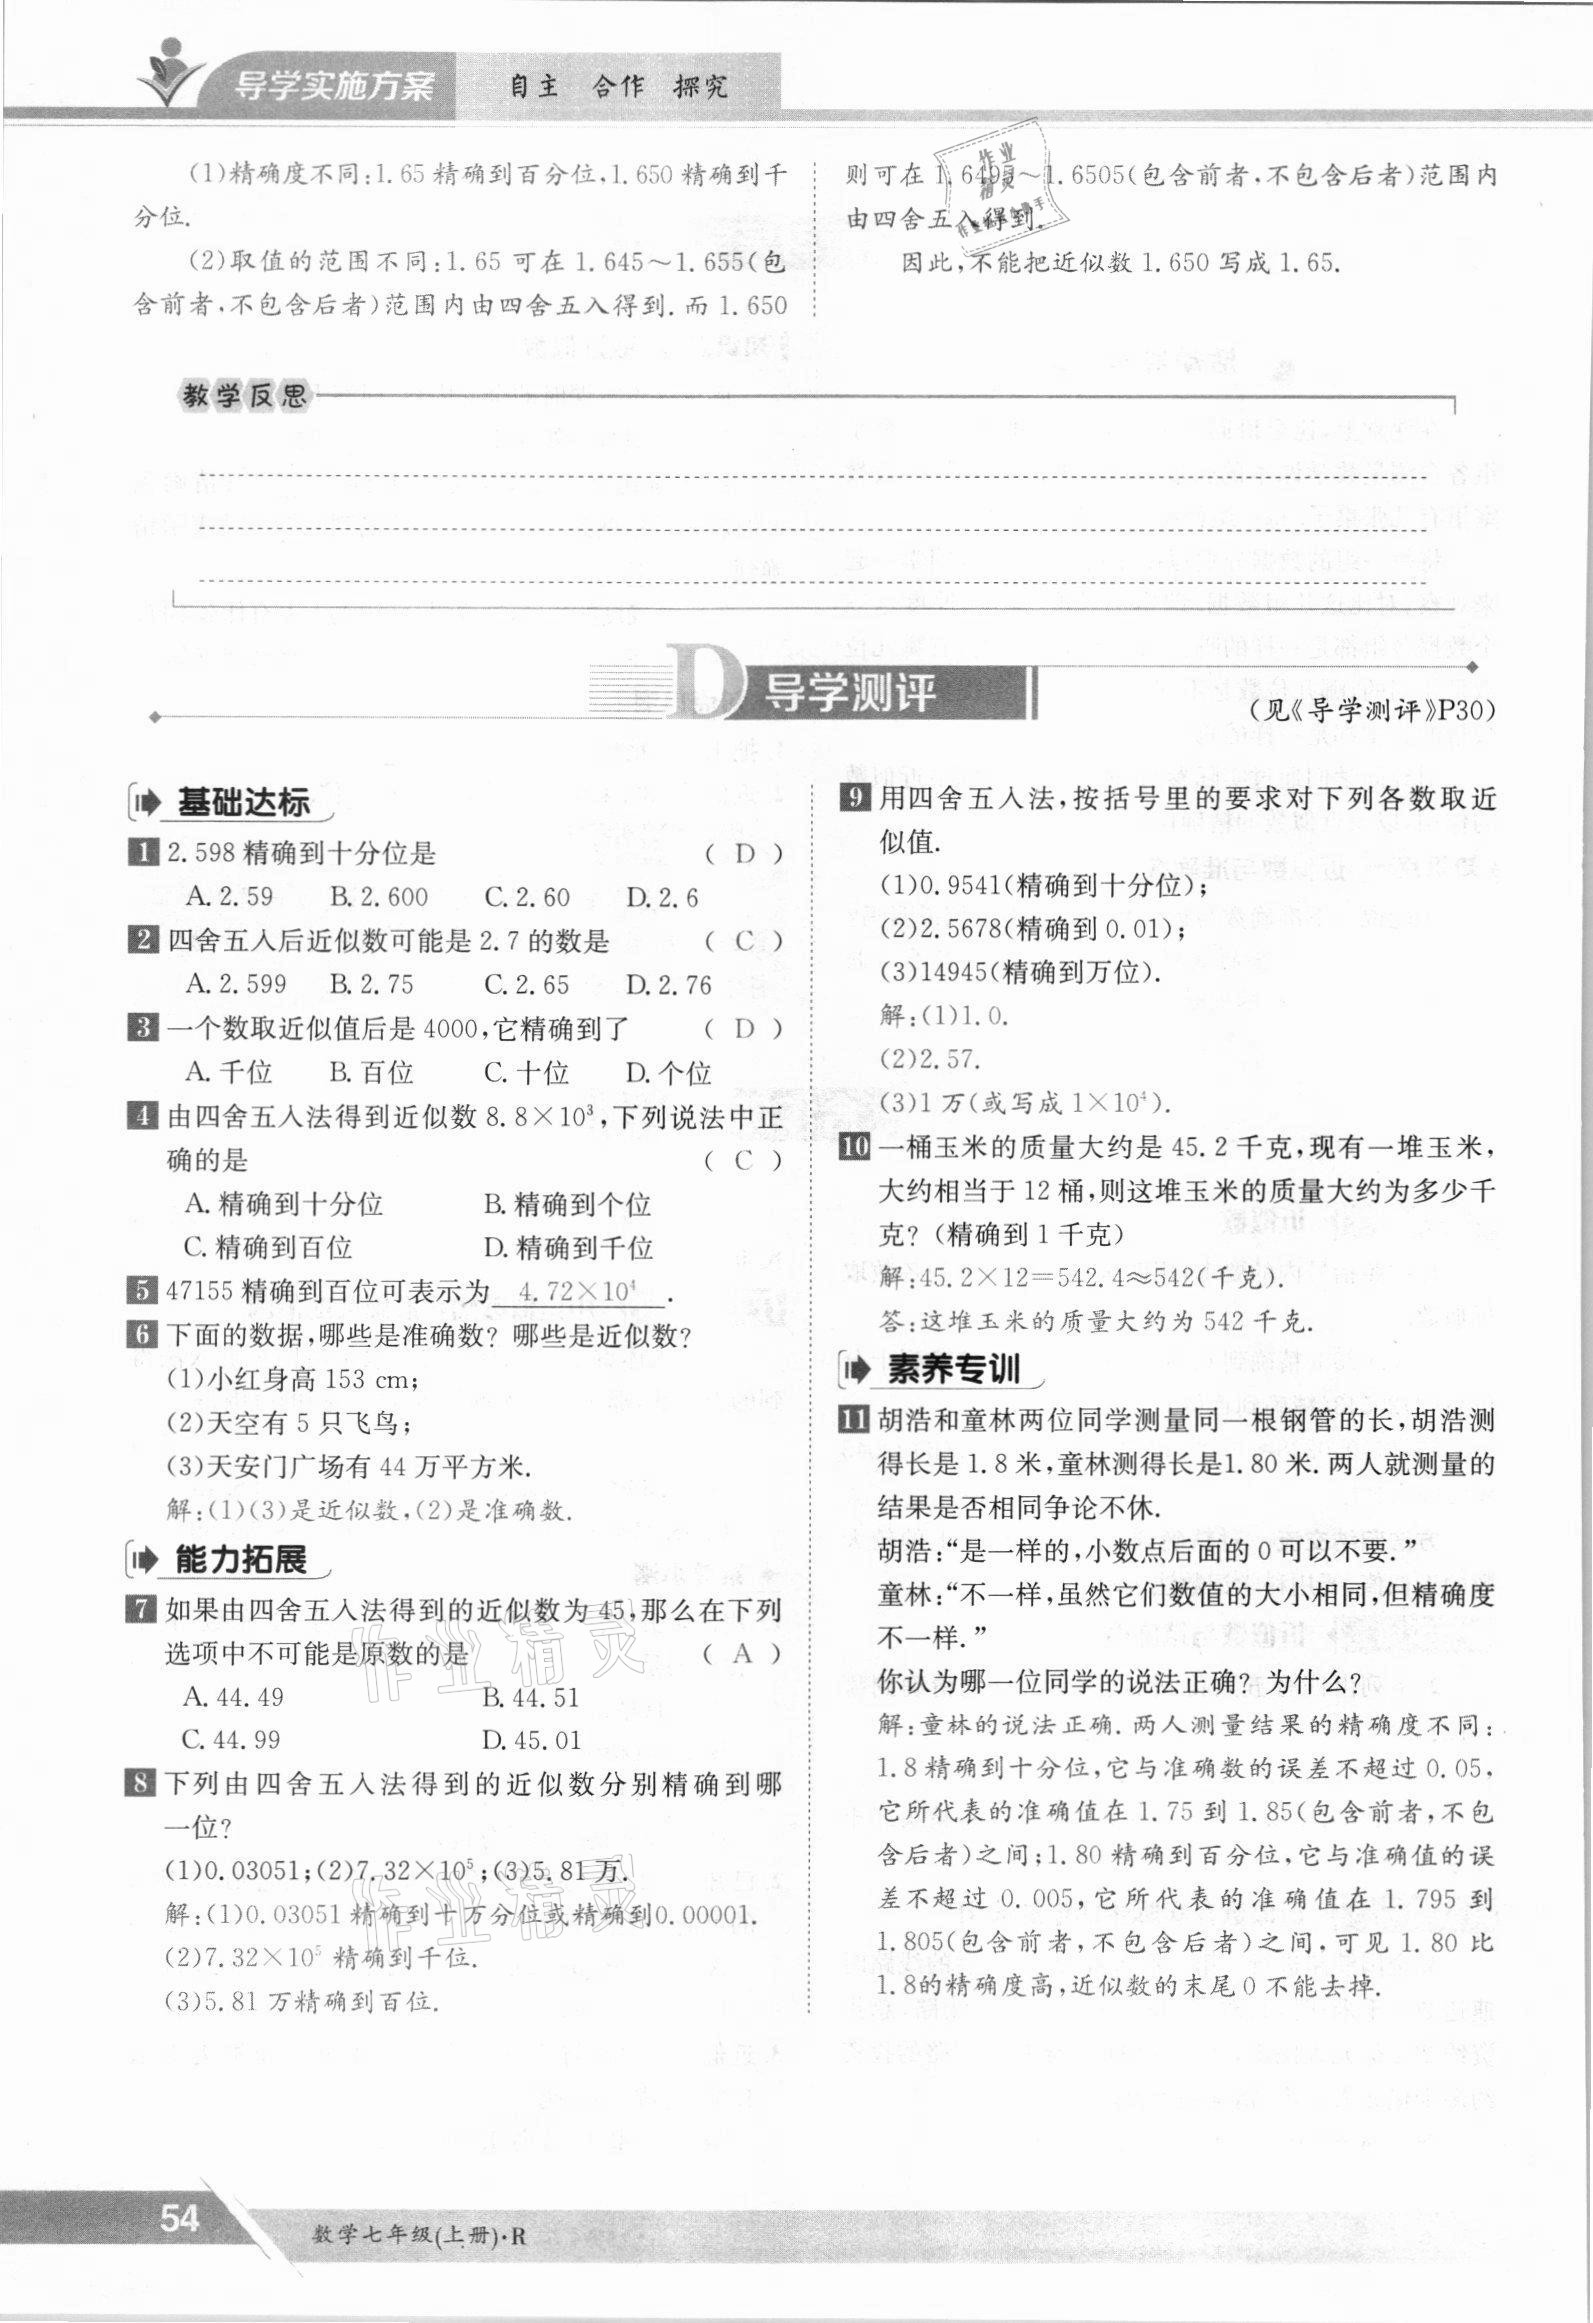 导学实施方案
自主 合作 探究
(1)精确度不同:1.65精确到百分位,1.650精确到千
分位.
(2)取值的范围不同:1.65可在1.645～1.655(包
含前者,不包含后者)范围内由四舍五入得到.而1.650
则可在1.6495～1.6505(包含前者,不包含后者)范围内
由四舍五入得到.
因此,不能把近似数1.650写成1.65.
教学反思
D 导学测评
(见《导学测评》P30)
基础达标
1 2.598精确到十分位是 ( D )
A.2.59 B.2.600 C.2.60 D.2.6
2 四舍五入后近似数可能是2.7的数是 ( C )
A.2.599 B.2.75 C.2.65 D.2.76
3 一个数取近似值后是4000,它精确到了 ( D )
A.千位 B.百位 C.十位 D.个位
4 由四舍五入法得到近似数8.8×10³,下列说法中正
确的是 ( C )
A.精确到十分位 B.精确到个位
C.精确到百位 D.精确到千位
5 47155精确到百位可表示为 4.72×10⁴ .
6 下面的数据,哪些是准确数?哪些是近似数?
(1)小红身高153 cm;
(2)天空有5只飞鸟;
(3)天安门广场有44万平方米.
解:(1)(3)是近似数,(2)是准确数.
能力拓展
7 如果由四舍五入法得到的近似数为45,那么在下列
选项中不可能是原数的是 ( A )
A.44.49 B.44.51
C.44.99 D.45.01
8 下列由四舍五入法得到的近似数分别精确到哪
一位?
(1)0.03051;(2)7.32×10⁵;(3)5.81万.
解:(1)0.03051精确到十万分位或精确到0.00001.
(2)7.32×10⁵ 精确到千位.
(3)5.81万精确到百位.
9 用四舍五入法,按括号里的要求对下列各数取近
似值.
(1)0.9541(精确到十分位);
(2)2.5678(精确到0.01);
(3)14945(精确到万位).
解:(1)1.0.
(2)2.57.
(3)1万(或写成1×10⁴).
10 一桶玉米的质量大约是45.2千克,现有一堆玉米,
大约相当于12桶,则这堆玉米的质量大约为多少千
克?(精确到1千克)
解:45.2×12=542.4≈542(千克).
答:这堆玉米的质量大约为542千克.
素养专训
11 胡浩和童林两位同学测量同一根钢管的长,胡浩测
得长是1.8米,童林测得长是1.80米.两人就测量的
结果是否相同争论不休.
胡浩:“是一样的,小数点后面的0可以不要.”
童林:“不一样,虽然它们数值的大小相同,但精确度
不一样.”
你认为哪一位同学的说法正确?为什么?
解:童林的说法正确.两人测量结果的精确度不同:
1.8精确到十分位,它与准确数的误差不超过0.05,
它所代表的准确值在1.75到1.85(包含前者,不包
含后者)之间;1.80精确到百分位,它与准确值的误
差不超过0.005,它所代表的准确值在1.795到
1.805(包含前者,不包含后者)之间,可见1.80比
1.8的精确度高,近似数的末尾0不能去掉.
作业精灵
作业精灵
作业精灵
54
数学七年级(上册)·R